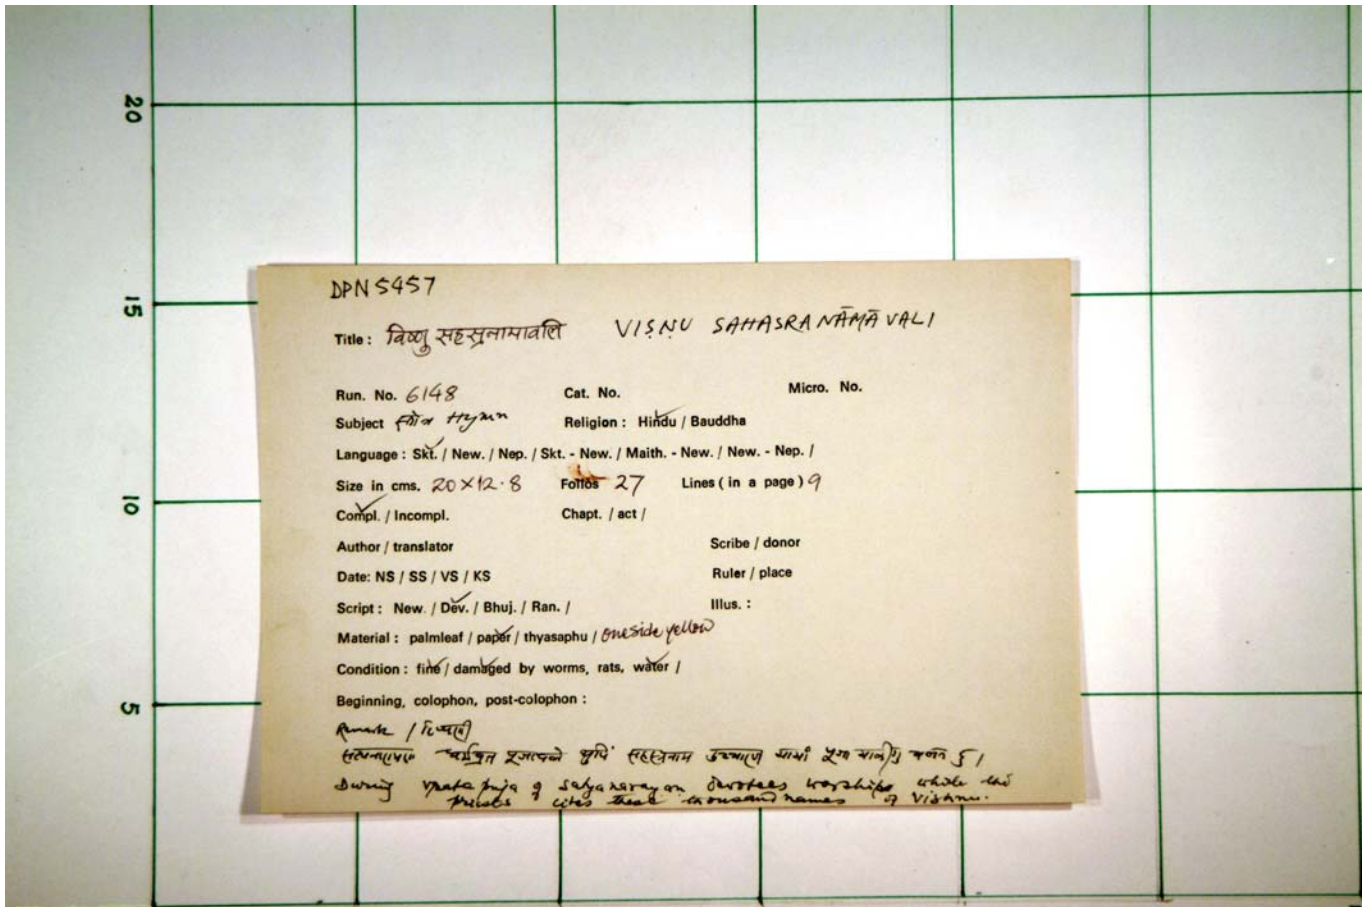 20
15
10
5
DPN 5457
Title : विष्णु सहस्रनामावलि VIṢṆU SAHASRANĀMĀVALI
Run. No. 6148 Cat. No. Micro. No.
Subject स्तोत्र Hymn Religion : Hindu / Bauddha
Language : Skt. / New. / Nep. / Skt. - New. / Maith. - New. / New. - Nep. /
Size in cms. 20×12.8 Folios 27 Lines ( in a page ) 9
Compl. / Incompl. Chapt. / act /
Author / translator Scribe / donor
Date: NS / SS / VS / KS Ruler / place
Script : New. / Dev. / Bhuj. / Ran. / Illus. :
Material : palmleaf / paper / thyasaphu / oneside yellow
Condition : fine / damaged by worms, rats, water /
Beginning, colophon, post-colophon :
Remark / टिप्पणी
सत्यनारायण सहस्रनाम
During vrata puja of satyanarayan devotees worships while the
priests cites these thousand names of Vishnu.